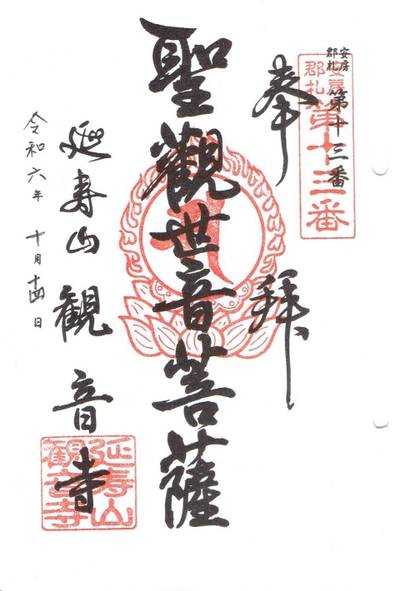 安房
郡札
第十三番
安房
郡札
第十三番
奉拝
聖觀世音菩薩
延寿山観音寺
延寿山
観音寺
令和六年十月十四日